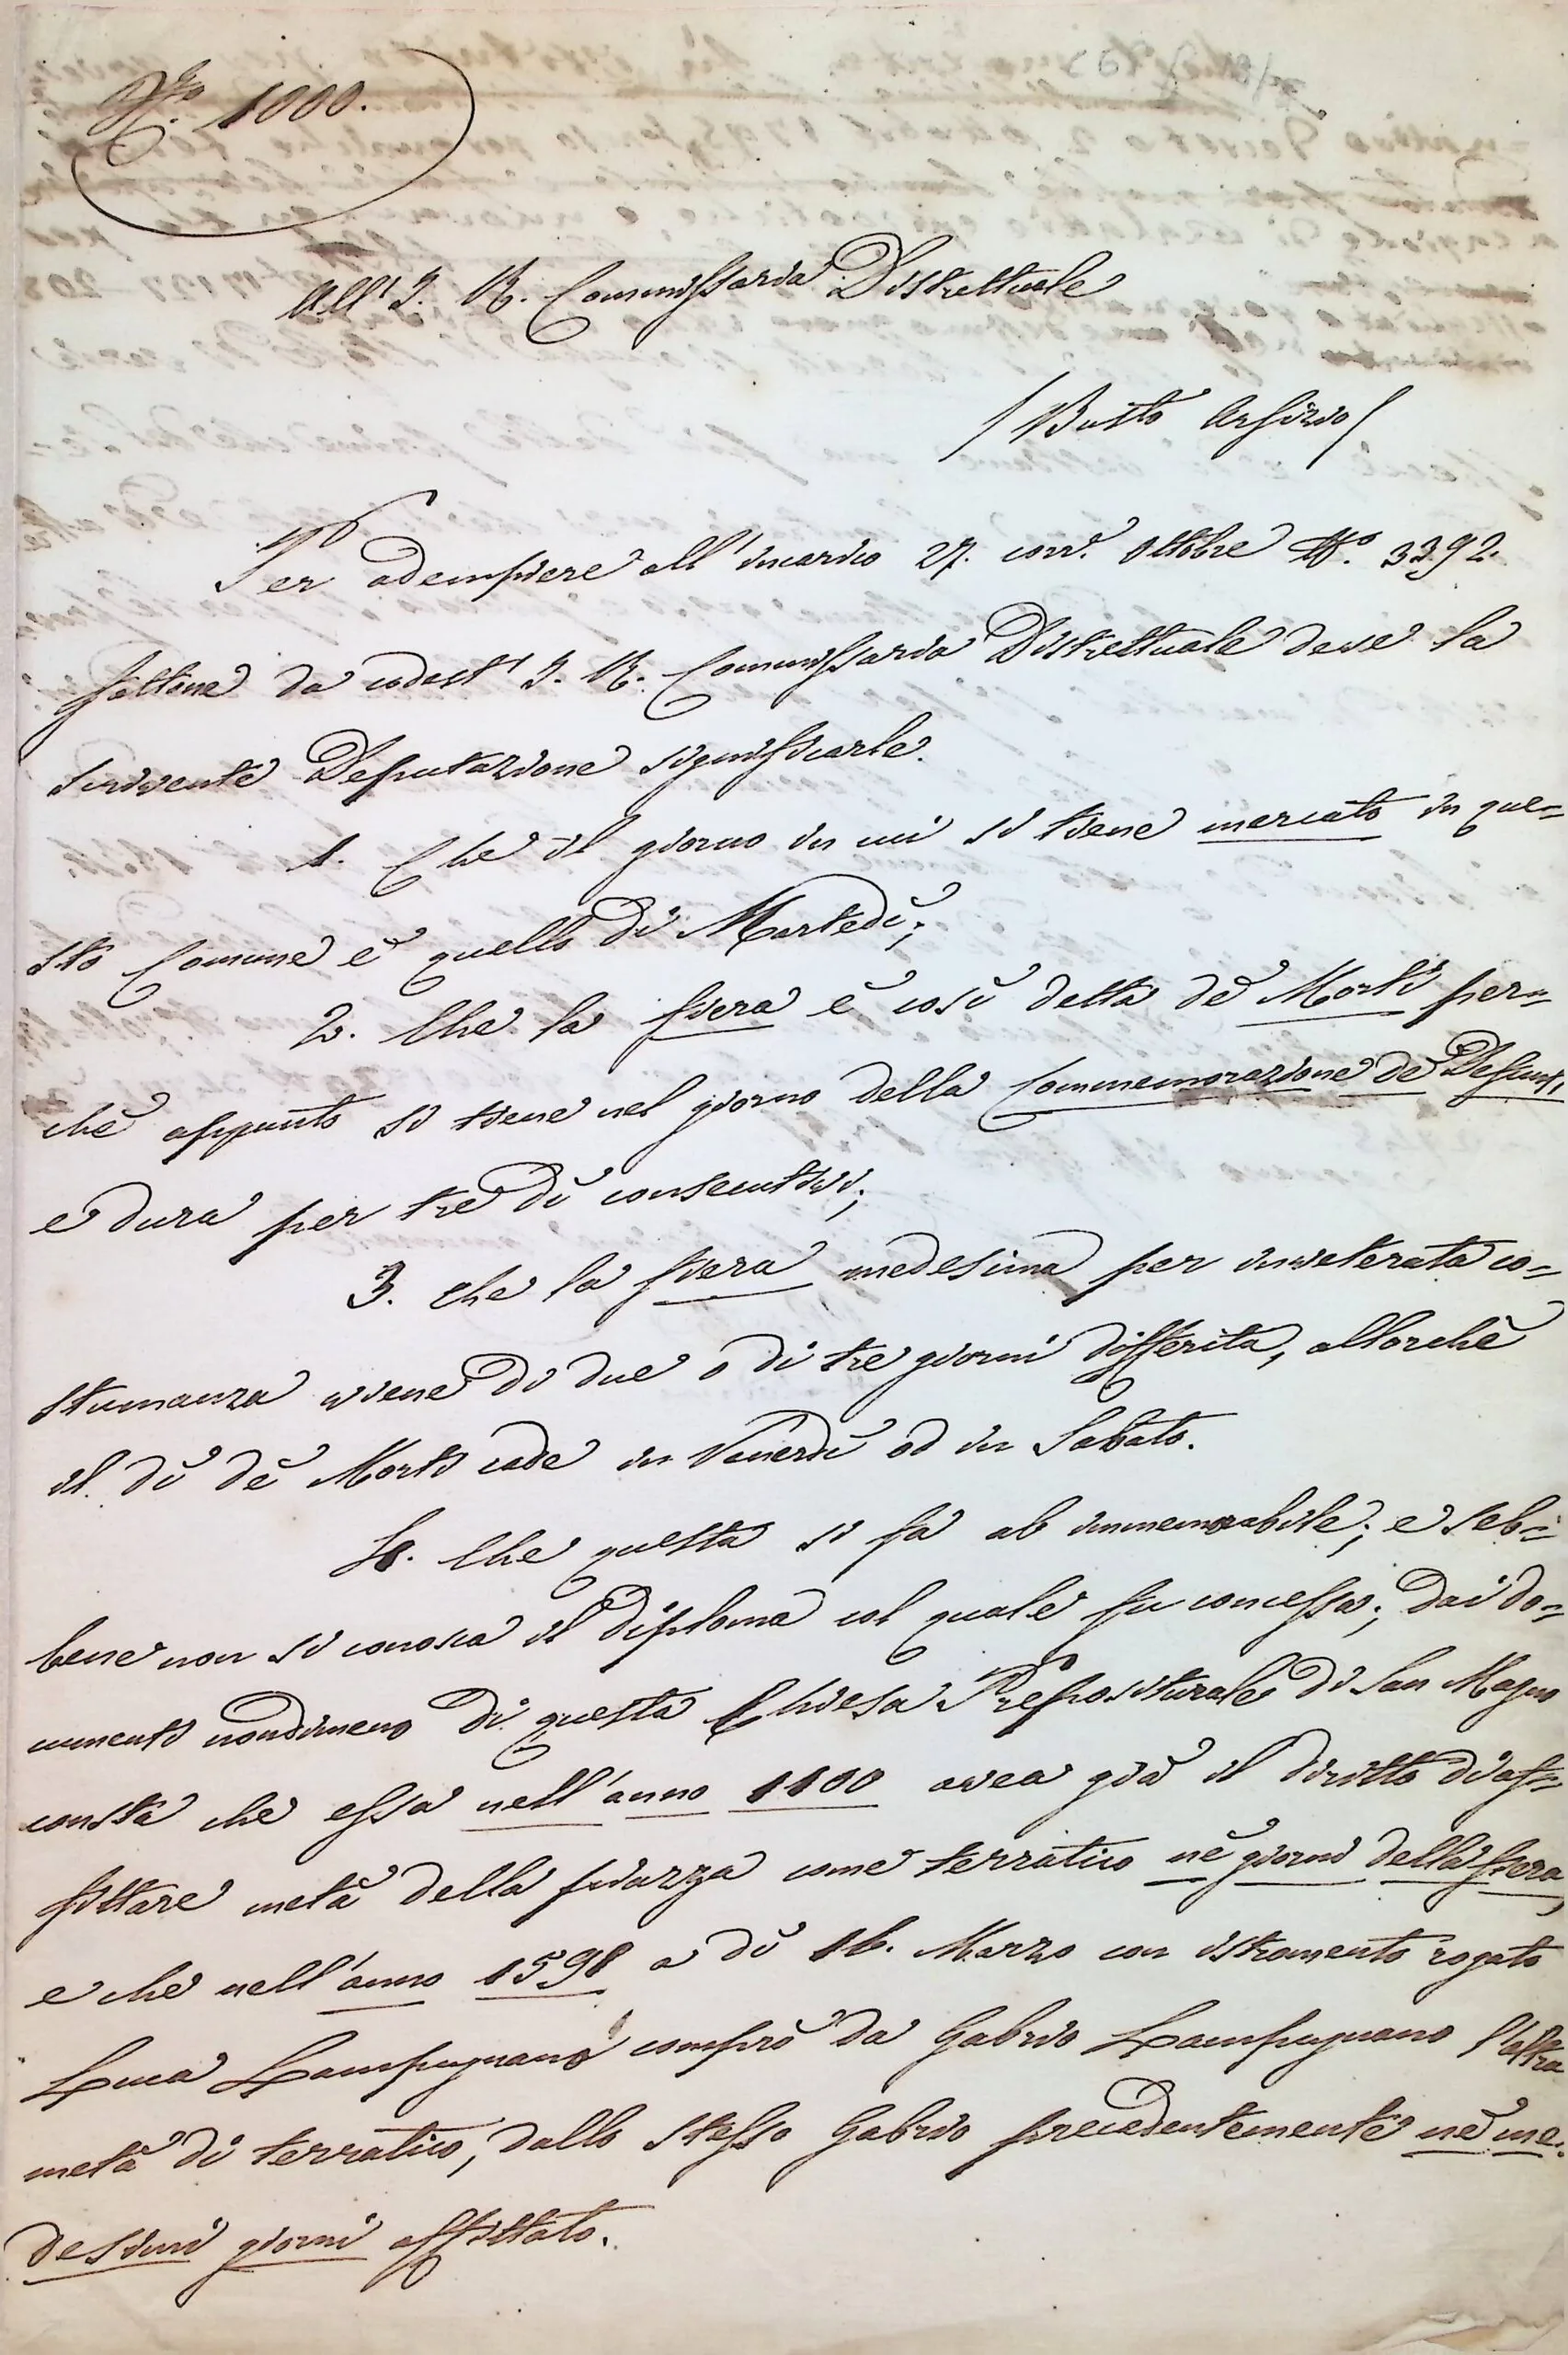 N.ro 1000.
All' I. R. Commissaria Distrettuale
/ Busto Arsizio /
Per adempiere all' incarico 27. corr.e Ottobre N.o 3392.
fattone da codest' I. R. Commissaria Distrettuale deve la
scrivente Deputazione significarle.
1. Che il giorno in cui si tiene mercato in que=
sto Comune è quello di Martedì;
2. Che la fiera è così detta dè Morti per=
chè appunto si tiene nel giorno della Commemorazione dè Defunti,
e dura per tre dì consecutivi;
3. che la fiera medesima per inveterata co=
stumanza viene di due o di tre giorni differita, allorchè
il dì dè Morti cade in Venerdì od in Sabato.
4. Che questa si fa ab immemorabile; e seb=
bene non si conosca il diploma col quale fu concessa; dai do=
cumenti nondimeno di questa Chiesa Prepositurale di San Magno
consta che essa nell'anno 1100 avea già il diritto di af=
fittare metà della piazza come terratico nè giorni della fiera,
e che nell'anno 1598 a dì 16. Marzo con istromento rogato
Luca Lampugnano comprò da Gabrio Lampugnano l'altra
metà di terratico, dallo stesso Gabrio precedentemente nè me=
desimi giorni affittato.